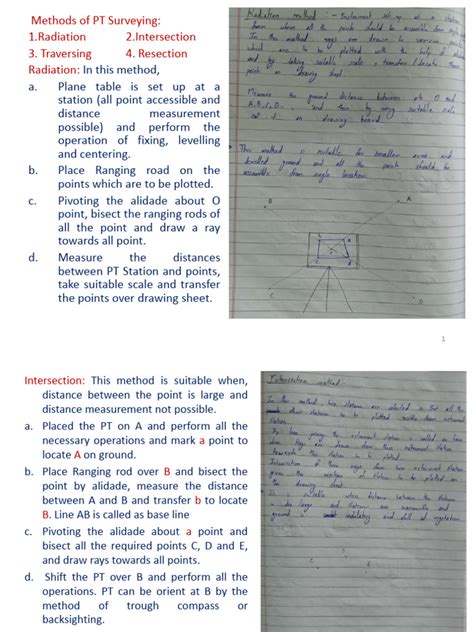 Methods of PT Surveying:
1.Radiation 2.Intersection
3. Traversing 4. Resection
Radiation: In this method,
a. Plane table is set up at a
station (all point accessible and
distance measurement
possible) and perform the
operation of fixing, levelling
and centering.
b. Place Ranging road on the
points which are to be plotted.
c. Pivoting the alidade about O
point, bisect the ranging rods of
all the point and draw a ray
towards all point.
d. Measure the distances
between PT Station and points,
take suitable scale and transfer
the points over drawing sheet.
Radiation method :- Instrument set up at a station
from where all the points should be
In this method rays are drawn to various points
which are to be plotted with the help of
and by taking suitable scale, transfer / locate these
points on drawing sheet.
Measure the ground distance between pts O and
A, B, C, D and then by using suitable scale
set on drawing board.
This method is suitable for smaller area and
ground and all the points should be
accessible from single location.
A
C
D
1
Intersection: This method is suitable when,
distance between the point is large and
distance measurement not possible.
a. Placed the PT on A and perform all the
necessary operations and mark a point to
locate A on ground.
b. Place Ranging rod over B and bisect the
point by alidade, measure the distance
between A and B and transfer b to locate
B. Line AB is called as base line
c. Pivoting the alidade about a point and
bisect all the required points C, D and E,
and draw rays towards all points.
d. Shift the PT over B and perform all the
operations. PT can be orient at B by the
method of trough compass or
backsighting.
Intersection method:-
In this method, two stations are selected so that all the
other stations to be plotted from
station.
the instrument station is called as base
line. Rays are drawn from instrument station
towards the station to be plotted.
Intersection of these rays from two instrument station
gives the position of station to be plotted on
the drawing sheet.
It is suitable when distance between the stations
is large and stations are
ground is undulating and full of vegetation.